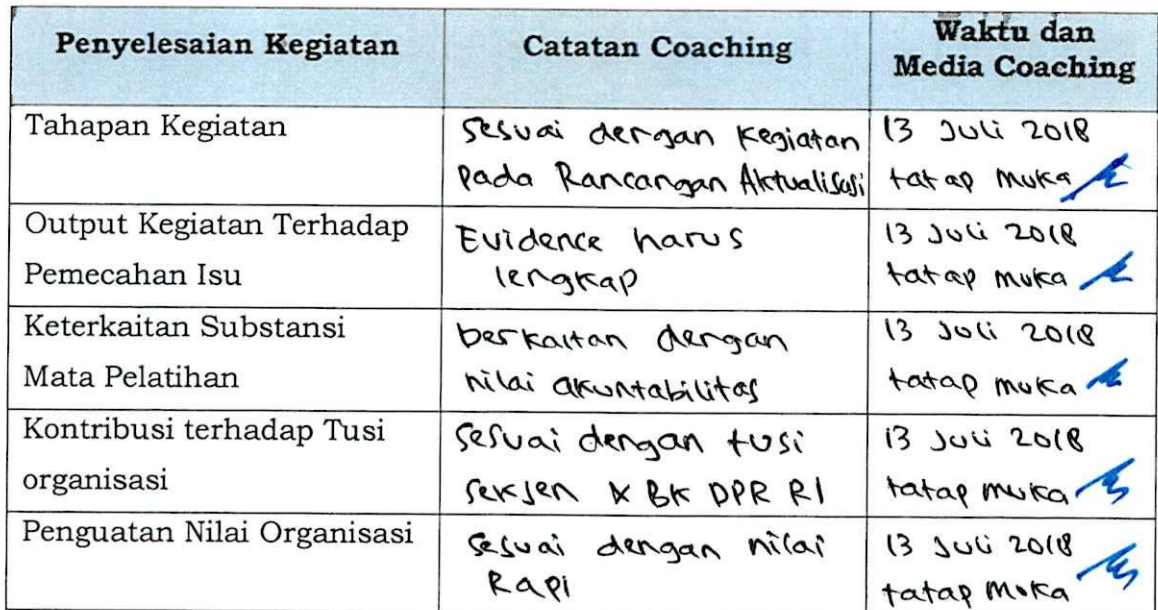 Penyelesaian Kegiatan
Catatan Coaching
Waktu dan
Media Coaching
Tahapan Kegiatan
sesuai dengan kegiatan
pada Rancangan Aktualisasi
13 Juli 2018
tatap muka
Output Kegiatan Terhadap
Pemecahan Isu
Evidence harus
lengkap
13 Juli 2018
tatap muka
Keterkaitan Substansi
Mata Pelatihan
berkaitan dengan
nilai akuntabilitas
13 Juli 2018
tatap muka
Kontribusi terhadap Tusi
organisasi
sesuai dengan tusi
seksjen & BK DPR RI
13 Juli 2018
tatap muka
Penguatan Nilai Organisasi
sesuai dengan nilai
Rapi
13 Juli 2018
tatap muka